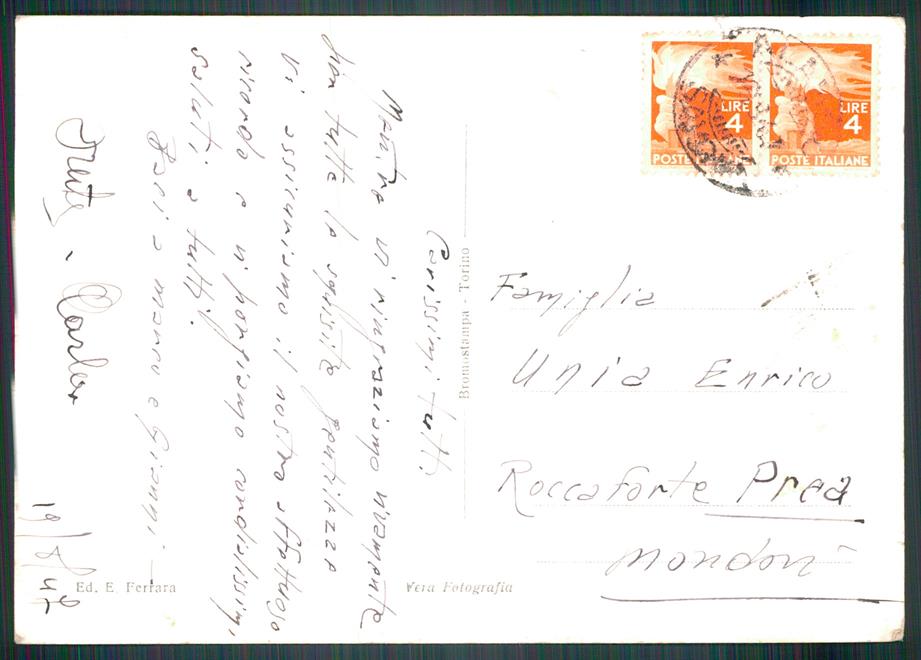 Carissimi tutti.
Mentre vi ringraziamo nuovamente
per tutte le squisite gentilezze
Vi assicuriamo il nostro affettuoso
ricordo e vi porgiamo cordialissimi
saluti a tutti.
Baci a mano e Gianni
Carlo
19/8/47
LIRE
4
POSTE ITALIANE
LIRE
4
POSTE ITALIANE
Famiglia
Unia Enrico
Roccaforte Prea
Mondovì
Bromostampa - Torino
Ed. E. Ferrara
Vera Fotografia